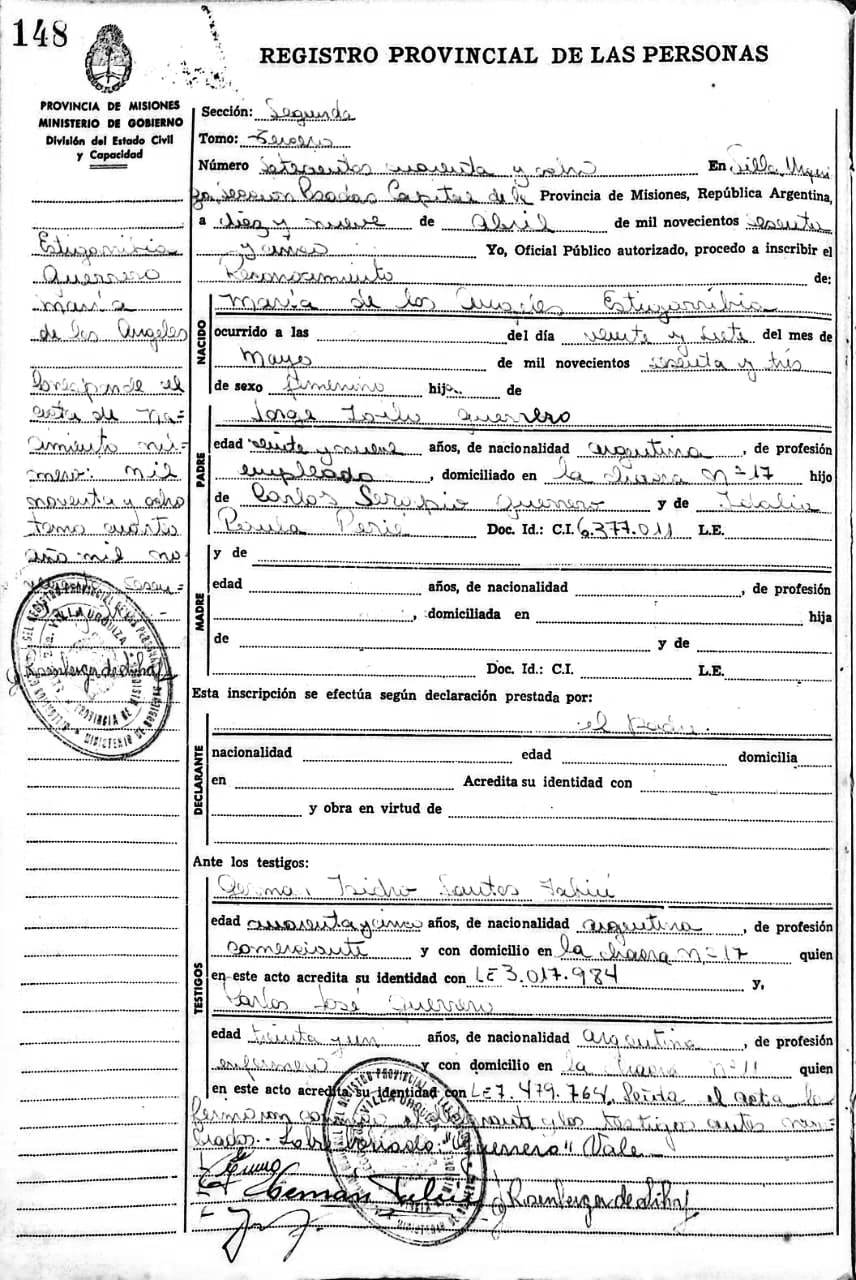 148
REGISTRO PROVINCIAL DE LAS PERSONAS
PROVINCIA DE MISIONES
MINISTERIO DE GOBIERNO
División del Estado Civil
y Capacidad
Estigarribia
Guerrero
María
de los Angeles
Corresponde el
acta de Na=
cimiento nú=
mero: mil
noventa y ocho
tomo cuarto
año mil no=
Sección: Segunda
Tomo: tercero
Número setecientos cuarenta y ocho En Villa Urqui
za, seccion Posadas Capital de la Provincia de Misiones, República Argentina,
a diez y nueve de Abril de mil novecientos sesenta
y cinco Yo, Oficial Público autorizado, procedo a inscribir el
Reconocimiento de:
NACIDO
María de los Angeles Estigarribia
ocurrido a las del día veinte y siete del mes de
Mayo de mil novecientos sesenta y tres
de sexo femenino hija de
PADRE
Jorge Guerrero
edad veinte y nueve años, de nacionalidad argentina, de profesión
empleado, domiciliado en la chacra Nº 17 hijo
de Carlos Serapio Guerrero y de Idalia
Doc. Id.: C.I. 6.377.011 L.E.
MADRE
y de
edad años, de nacionalidad, de profesión
, domiciliada en hija
de y de
Doc. Id.: C.I. L.E.
Esta inscripción se efectúa según declaración prestada por:
el padre.
DECLARANTE
nacionalidad edad domicilia
en Acredita su identidad con
y obra en virtud de
Ante los testigos:
TESTIGOS
Isidro Santos
edad cuarenta y cinco años, de nacionalidad argentina, de profesión
comerciante y con domicilio en la chacra Nº 17 quien
en este acto acredita su identidad con LE 3.017.984 y,
Carlos José Guerrero
edad treinta y un años, de nacionalidad Argentina, de profesión
enfermero y con domicilio en la chacra Nº 11 quien
en este acto acredita su identidad con LE 7.479.764. Leída el acta la
firmaron conmigo y los testigos antes nom=
brados.- Sobre borrado: "Guerrero" Vale